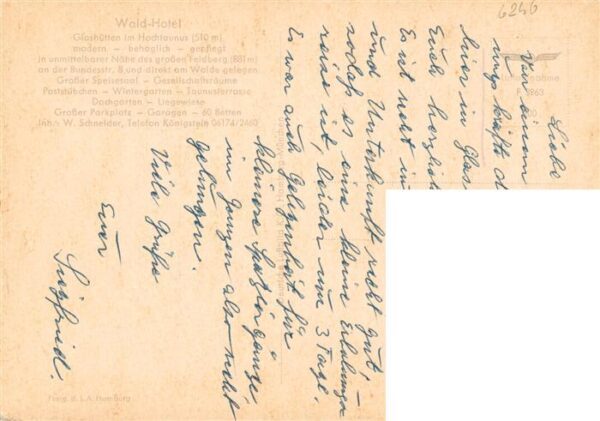 Wald-Hotel
Glashütten im Hochtaunus (510 m)
modern – behaglich – gepflegt
in unmittelbarer Nähe des großen Feldberg (881m)
an der Bundesstr. 8 und direkt am Walde gelegen
Großer Speisesaal – Gesellschaftsräume
Poststübchen – Wintergarten – Taunusterrasse
Dachgarten – Liegewiese
Großer Parkplatz – Garagen – 60 Betten
Inh.: W. Schneider, Telefon Königstein 06174/2460
6246
Liebe
Von einem
hier in Glas
Euch herzlich
Es ist nett
und Unterkunft recht gut,
sodaß es eine kleine Erholungs-
reise ist, leider nur 3 Tage.
Es war auch Gelegenheit für
kleinere Spaziergänge,
im Ganzen also recht
gelungen.
Viele Grüße
Euer
Siegfried.